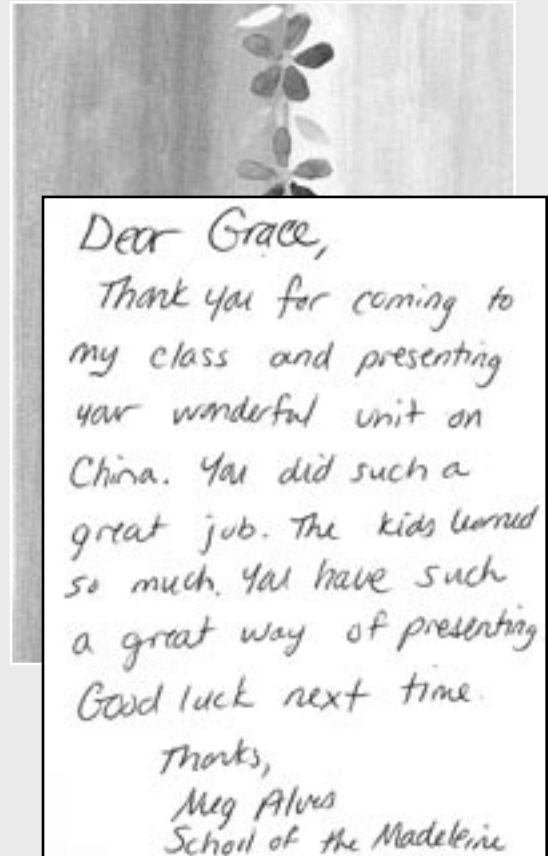 Dear Grace,
Thank you for coming to
my class and presenting
your wonderful unit on
China. You did such a
great job. The kids learned
so much. You have such
a great way of presenting
Good luck next time.
Thanks,
Meg Alves
School of the Madeleine